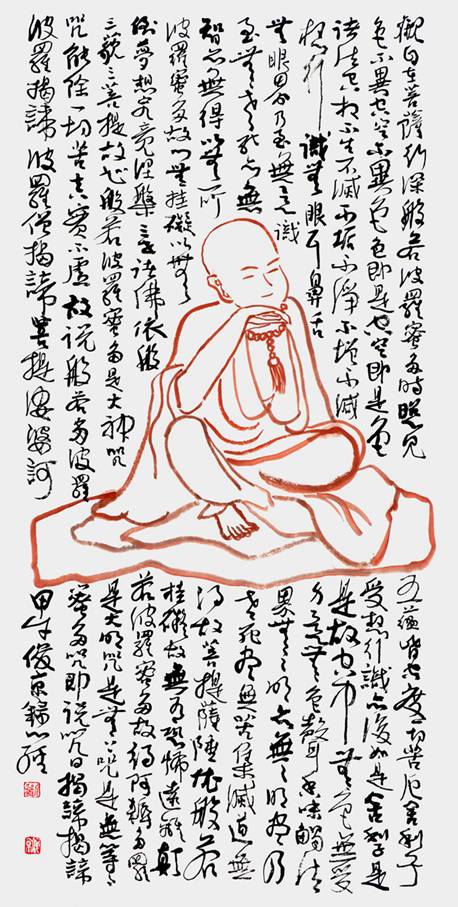 觀自在菩薩行深般若波羅蜜多時照見
五蘊皆空度一切苦厄舍利子
色不異空空不異色色即是空空即是色
受想行識亦復如是舍利子是
諸法空相不生不滅不垢不淨不增不減
是故空中無色無受
想行識無眼耳鼻舌
身意無色聲香味觸法
無眼界乃至無意識
界無無明亦無無明盡乃
至無老死亦無
老死盡無苦集滅道無
智亦無得以無所
得故菩提薩埵依般若
波羅蜜多故心無挂礙以無
挂礙故無有恐怖遠離顛
倒夢想究竟涅槃三世諸佛依般
若波羅蜜多故得阿耨多羅
三藐三菩提故知般若波羅蜜多是大神咒
是大明咒是無上咒是無等等
咒能除一切苦真實不虛故說般若多波羅
蜜多咒即說咒曰揭諦揭諦
波羅揭諦波羅僧揭諦菩提薩婆訶
甲午俊京